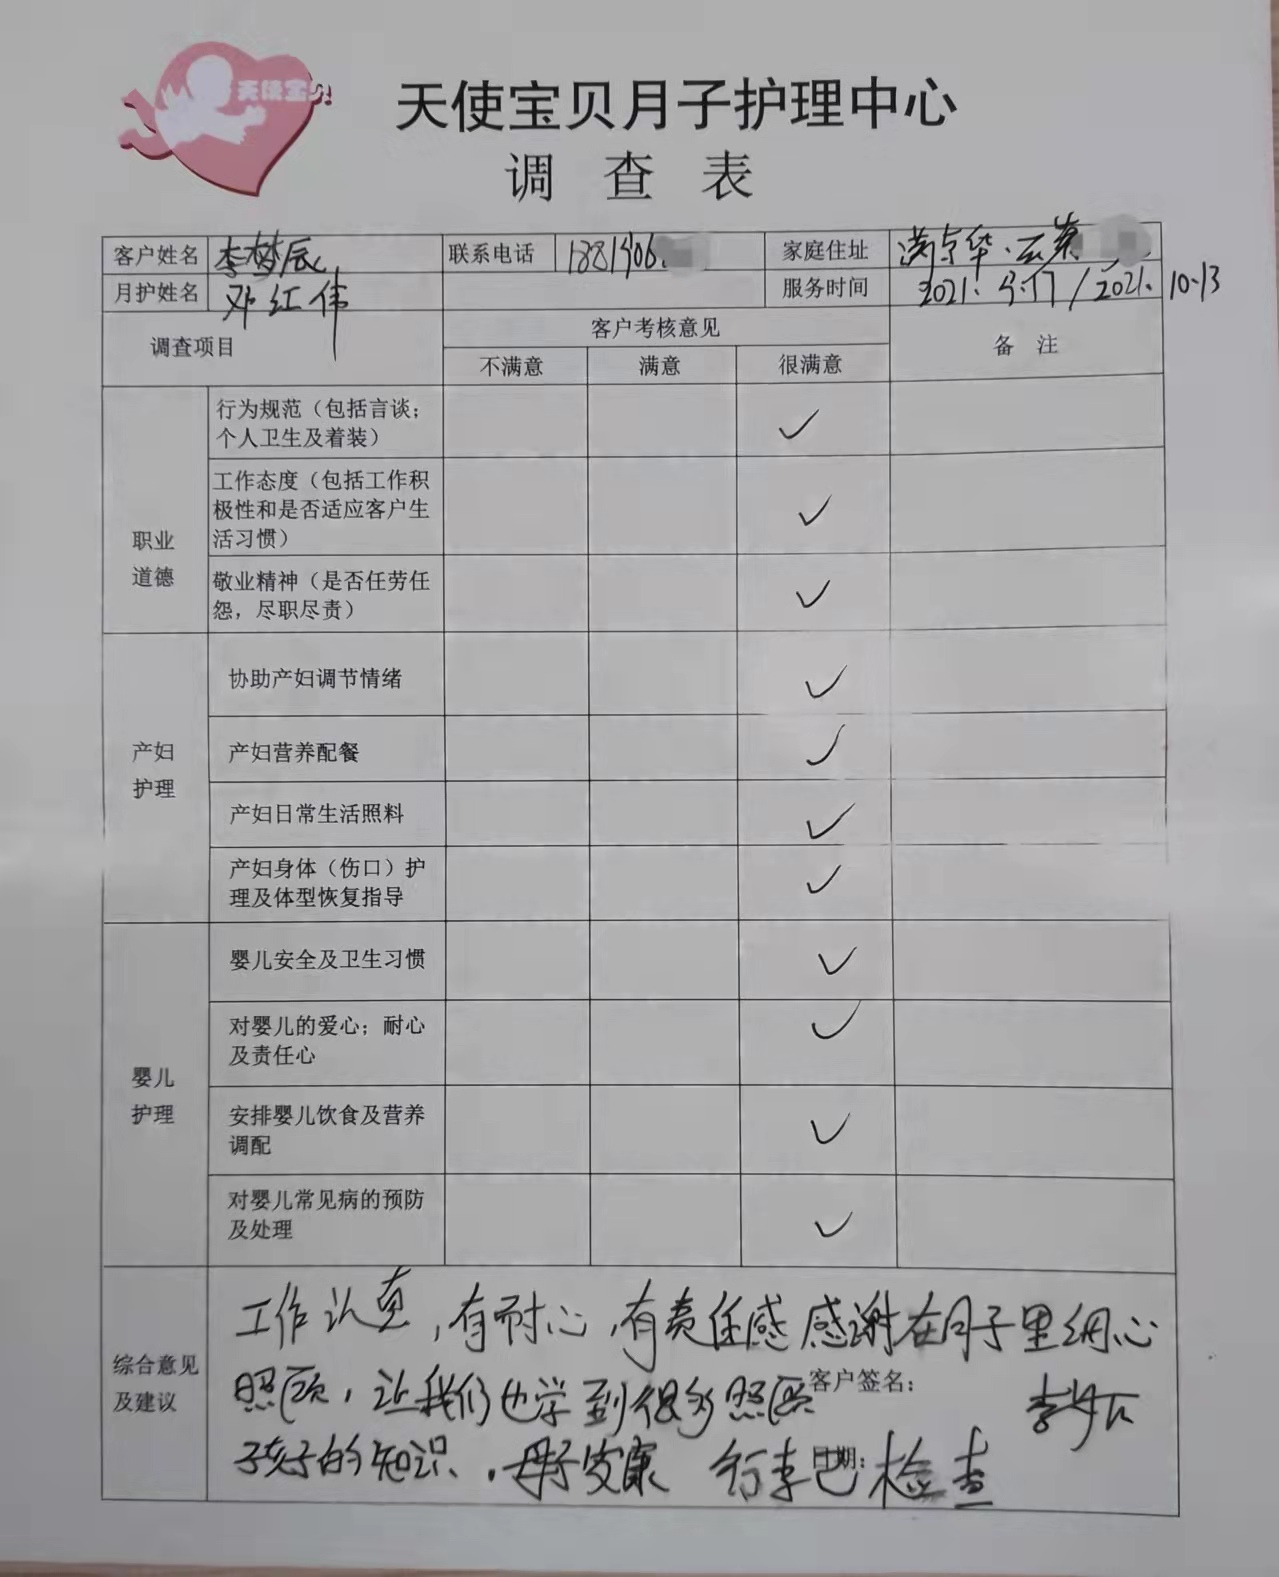 天使宝贝
天使宝贝月子护理中心
调 查 表
客户姓名 李梦辰 联系电话 1881406 家庭住址 满京华·云
月护姓名 邓红伟 服务时间 2021. / 2021. 10-13
调查项目 客户考核意见 备 注
不满意 满意 很满意
职业
道德
行为规范（包括言谈；
个人卫生及着装） ✓
工作态度（包括工作积
极性和是否适应客户生
活习惯） ✓
敬业精神（是否任劳任
怨，尽职尽责） ✓
产妇
护理
协助产妇调节情绪 ✓
产妇营养配餐 ✓
产妇日常生活照料 ✓
产妇身体（伤口）护
理及体型恢复指导 ✓
婴儿
护理
婴儿安全及卫生习惯 ✓
对婴儿的爱心；耐心
及责任心 ✓
安排婴儿饮食及营养
调配 ✓
对婴儿常见病的预防
及处理 ✓
综合意见
及建议
工作认真，有耐心，有责任感 感谢在月子里细心
照顾，让我们也学到很多照顾
客户签名：
子孩子的知识．母子安康 行李已检查
日期：